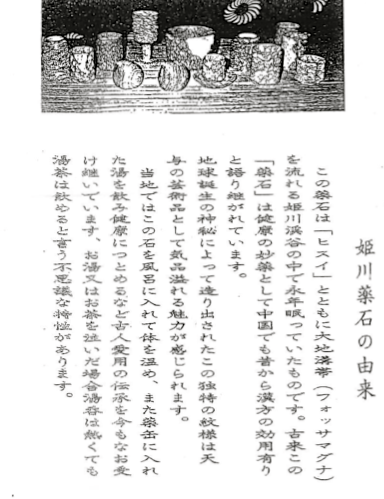 姫川薬石の由来
この薬石は「ヒスイ」とともに大地溝帯(フォッサマグナ)
を流れる姫川渓谷の中で永年眠っていたものです。古来この
「薬石」は健康の妙薬として中国でも昔から漢方の効用有り
と語り継がれています。
地球誕生の神秘によって造り出されたこの独特の紋様は天
与の芸術品として気品溢れる魅力が感じられます。
当地ではこの石を風呂に入れて体を温め、また薬缶に入れ
た湯を飲み健康につとめるなど古人愛用の伝承を今もなお受
け継いでいます、お湯又はお茶を注いだ場合湯呑は熱くても
湯茶は飲めると言う不思議な特性があります。